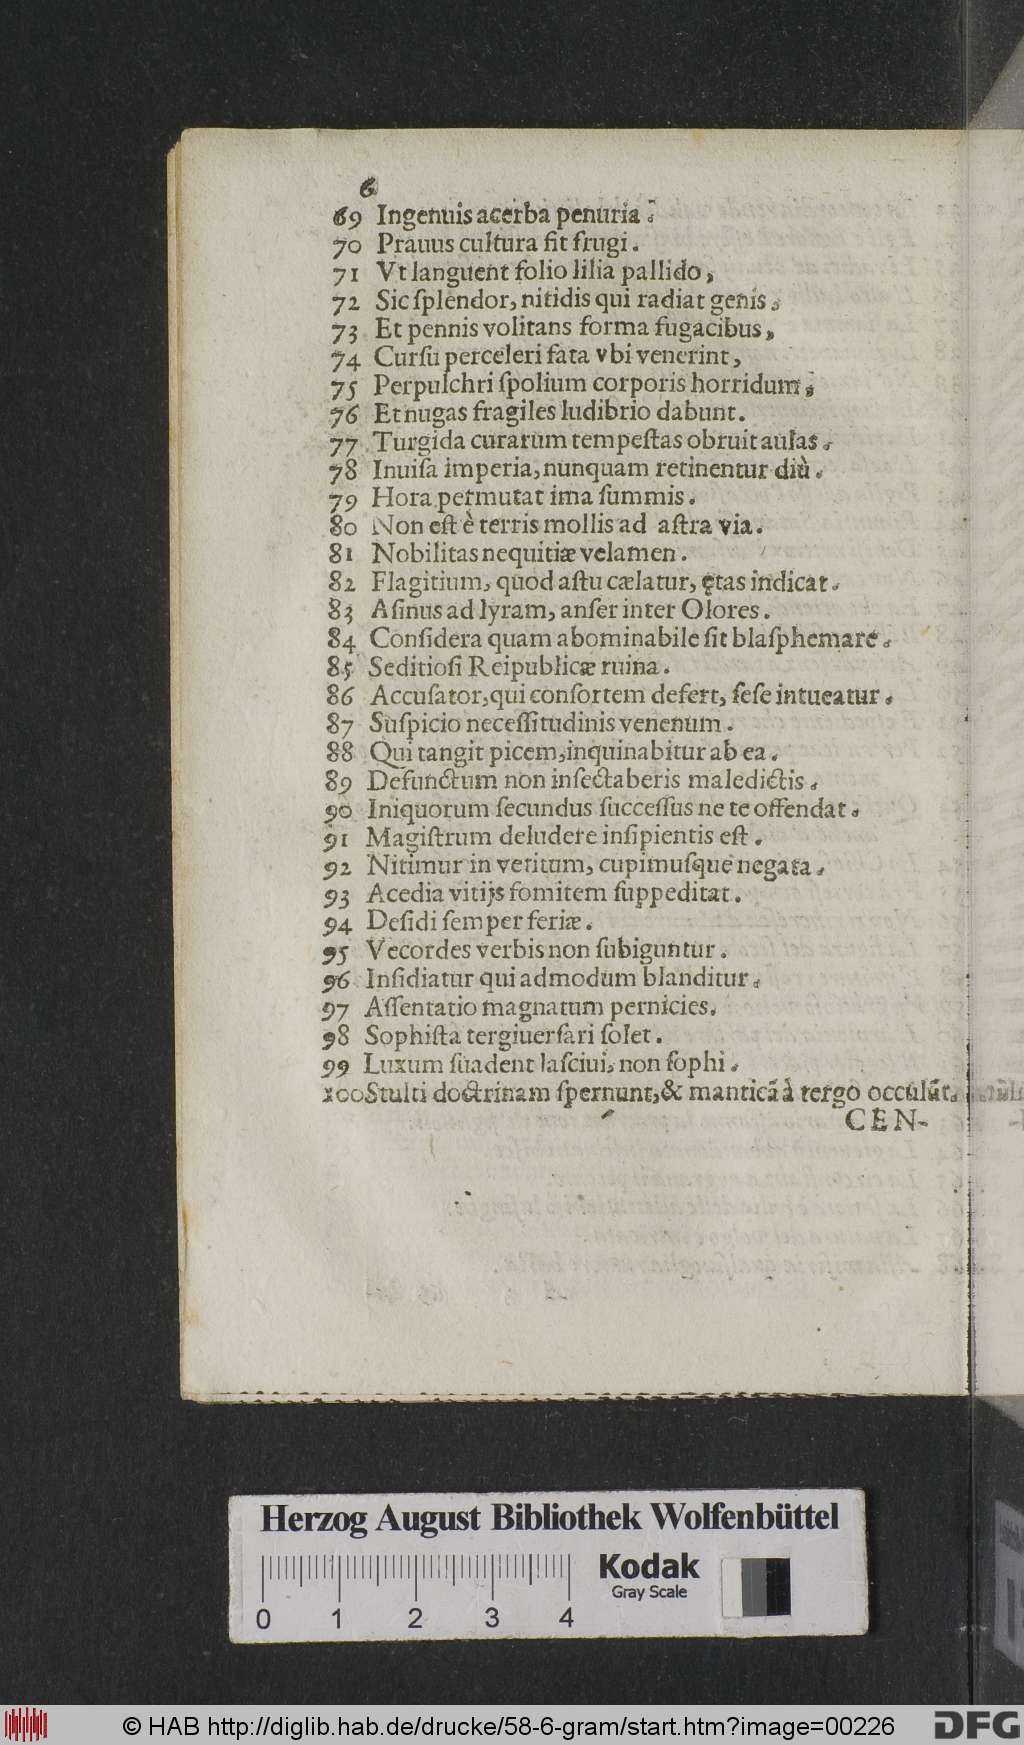 6
69 Ingenuis acerba penuria.
70 Prauus cultura fit frugi.
71 Vt languent folio lilia pallido,
72 Sic ſplendor, nitidis qui radiat genis,
73 Et pennis volitans forma fugacibus,
74 Curſu perceleri fata vbi venerint,
75 Perpulchri ſpolium corporis horridum,
76 Et nugas fragiles ludibrio dabunt.
77 Turgida curarum tempeſtas obruit aulas.
78 Inuiſa imperia, nunquam retinentur diù.
79 Hora permutat ima ſummis.
80 Non eſt è terris mollis ad aſtra via.
81 Nobilitas nequitiæ velamen.
82 Flagitium, quod aſtu cælatur, ętas indicat.
83 Aſinus ad lyram, anſer inter Olores.
84 Conſidera quam abominabile ſit blaſphemare.
85 Seditioſi Reipublicæ ruina.
86 Accuſator, qui conſortem defert, ſeſe intueatur.
87 Suſpicio neceſſitudinis venenum.
88 Qui tangit picem, inquinabitur ab ea.
89 Defunctum non inſectaberis maledictis.
90 Iniquorum ſecundus ſucceſſus ne te offendat.
91 Magiſtrum deludere inſipientis eſt.
92 Nitimur in vetitum, cupimuſque negata.
93 Acedia vitijs fomitem ſuppeditat.
94 Deſidi ſemper feriæ.
95 Vecordes verbis non ſubiguntur.
96 Inſidiatur qui admodum blanditur.
97 Aſſentatio magnatum pernicies.
98 Sophiſta tergiuerſari ſolet.
99 Luxum ſuadent laſciui, non ſophi.
100 Stulti doctrinam ſpernunt, & manticã à tergo occulũt.
CEN-
Herzog August Bibliothek Wolfenbüttel
Kodak
Gray Scale
0 1 2 3 4
© HAB http://diglib.hab.de/drucke/58-6-gram/start.htm?image=00226
DFG